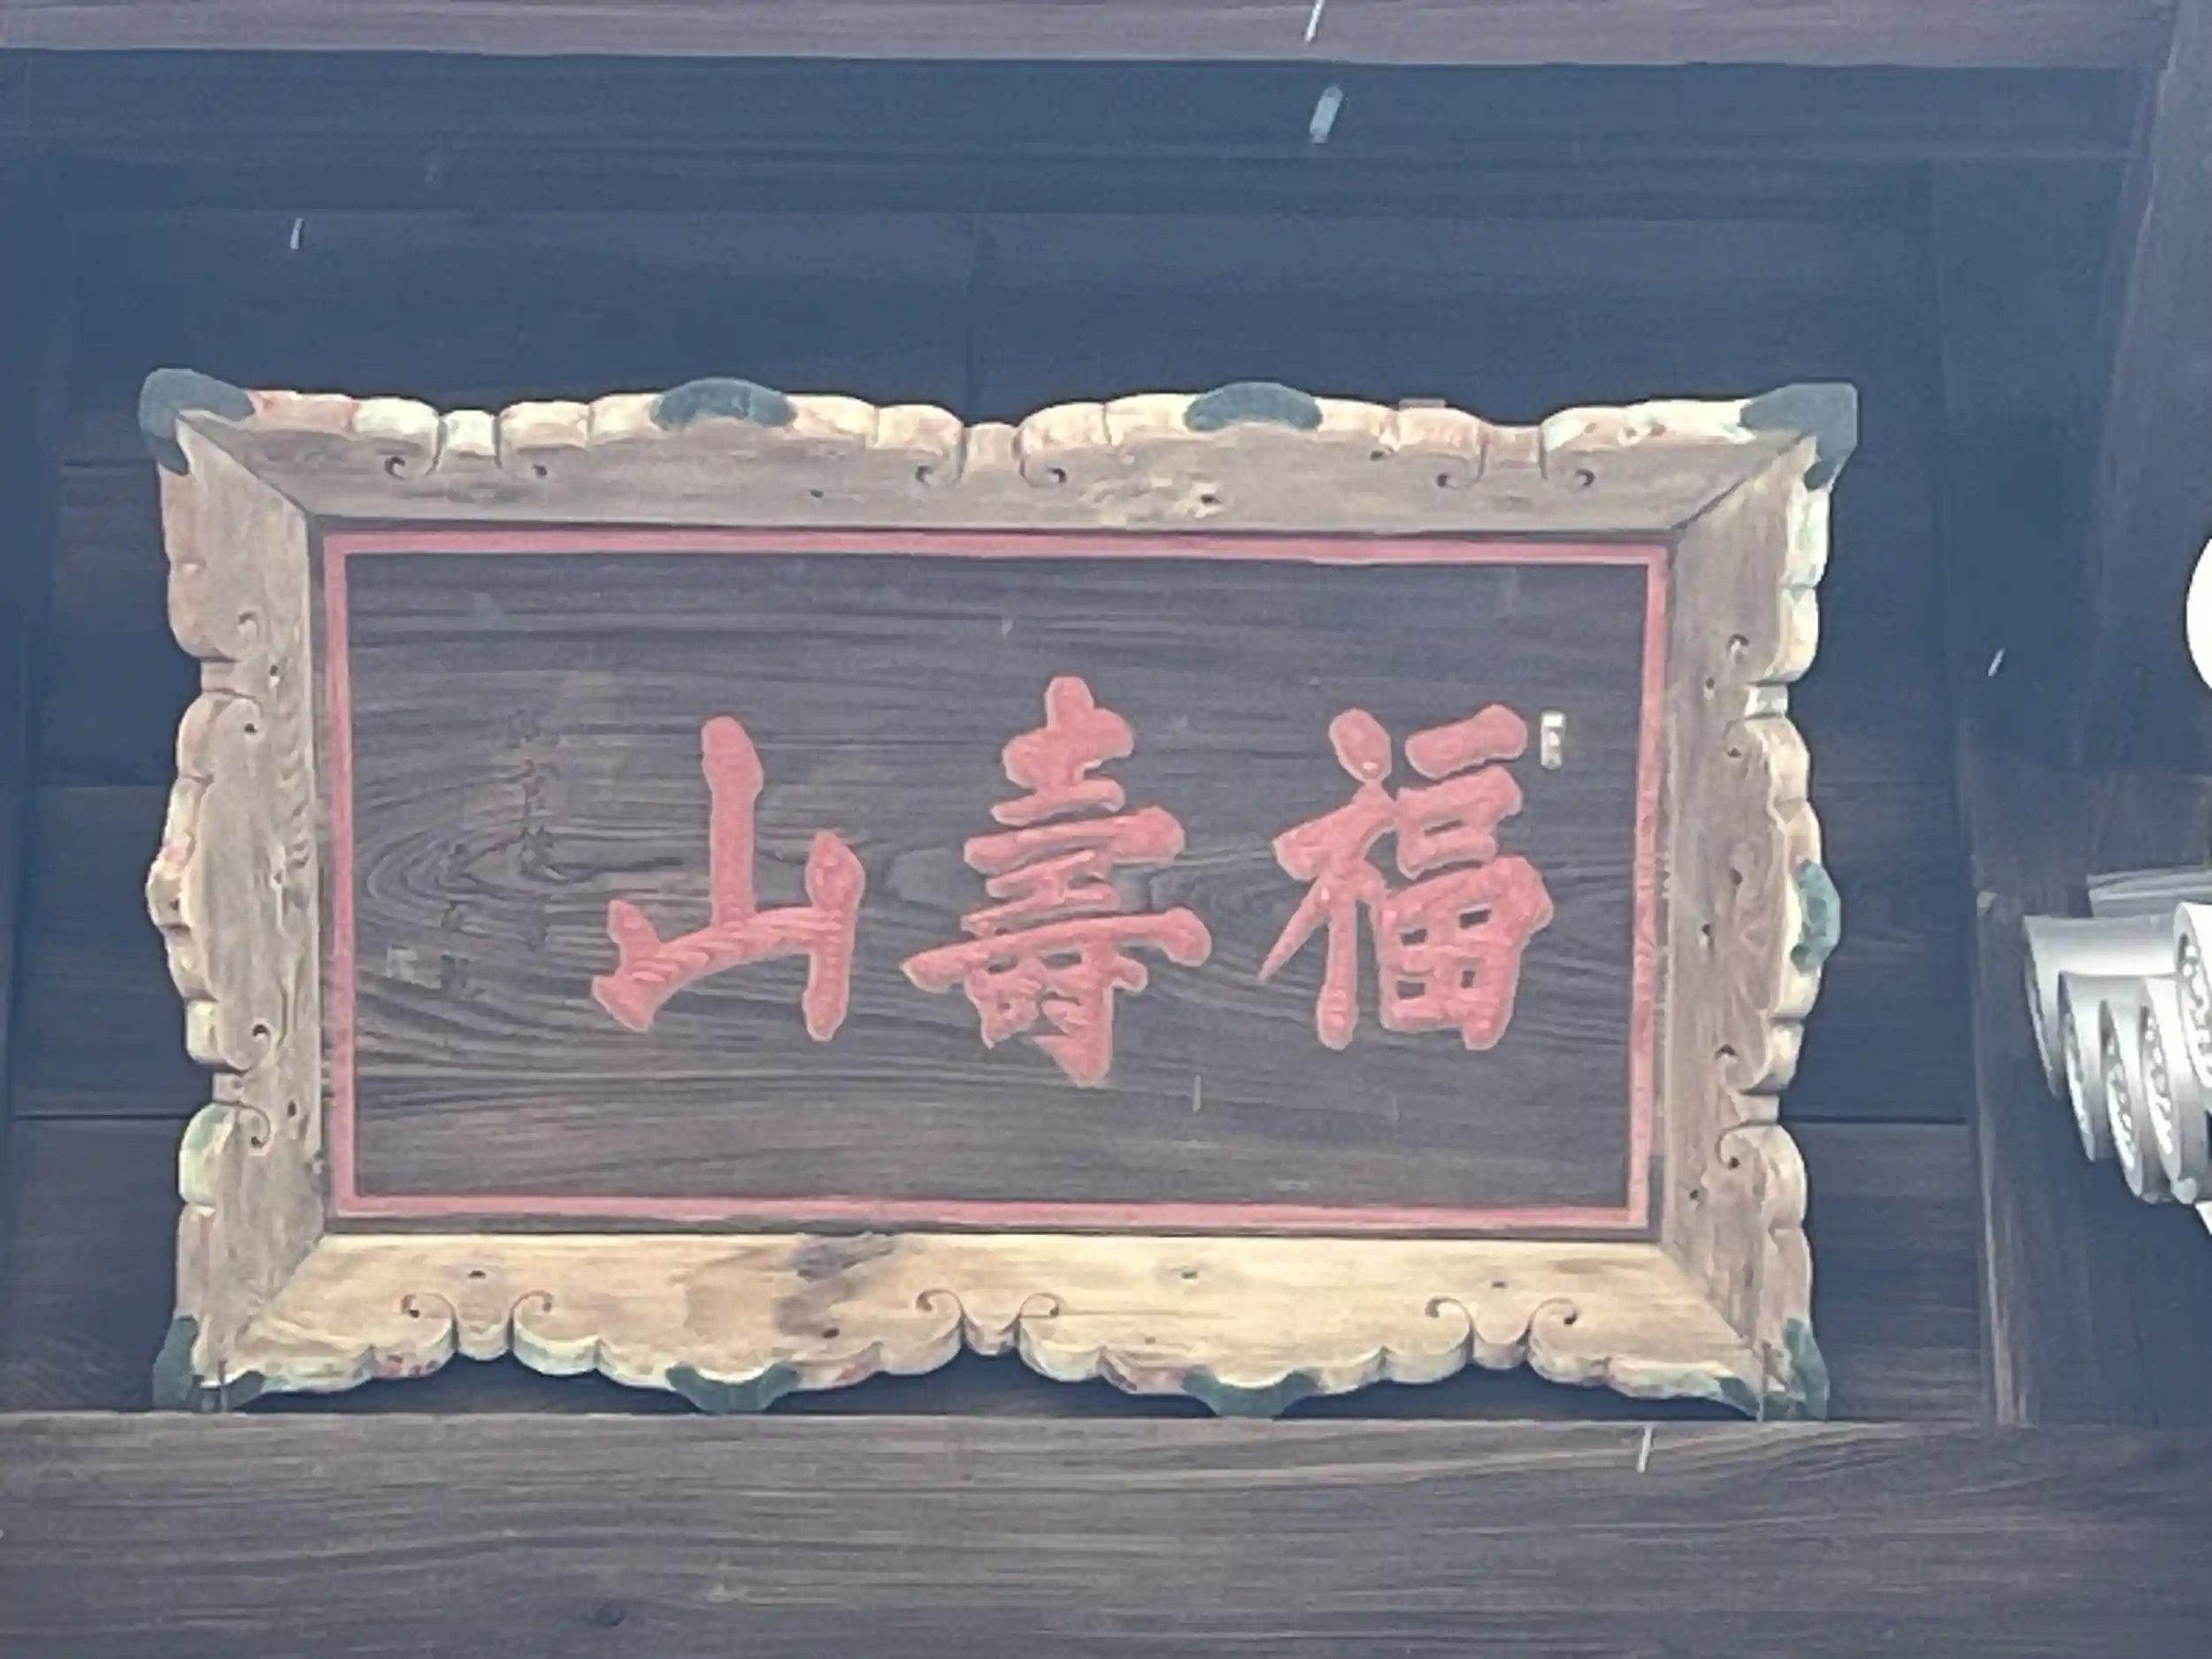 福壽山